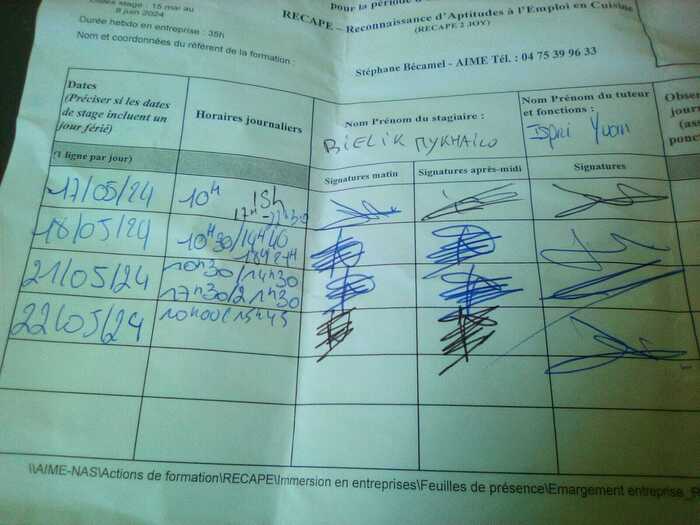 stage : 15 mai au
8 juin 2024
Durée hebdo en entreprise : 35h
Nom et coordonnées du référent de la formation :
pour la période d
RECAPE – Reconnaissance d'Aptitudes à l'Emploi en Cuisine
(RECAPE 2 JOY)
Stéphane Bécamel - AIME Tél. : 04 75 39 96 33
Dates
(Préciser si les dates
de stage incluent un
jour férié)
Horaires journaliers
Nom Prénom du stagiaire :
BIELIK MYKHAILO
Nom Prénom du tuteur
et fonctions :
Yvan
Obser
jour
(ass
ponc
(1 ligne par jour)
Signatures matin
Signatures après-midi
Signatures
17/05/24
10H 15h
17H
18/05/24
10H30/14H40
21/05/24
10h30/14h30
17h30/21h30
22/05/24
10h00/15h45
\\AIME-NAS\Actions de formation\RECAPE\Immersion en entreprises\Feuilles de présence\Emargement entreprise_R